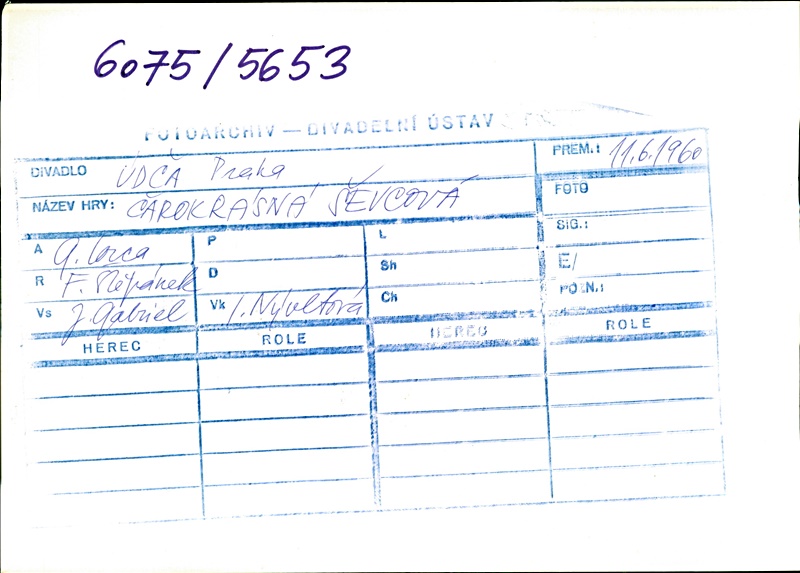 6075/5653
FOTOARCHIV — DIVADELNÍ ÚSTAV
DIVADLO ÚDČA Praha PREM.: 11.6.1960
NÁZEV HRY: ČAROKRÁSNÁ ŠEVCOVÁ FOTO
A G. Lorca P L SIG.:
R F. Štěpánek D Sh E/
Vs J. Gabriel Vk I. Nývltová Ch POZN.:
HEREC ROLE HEREC ROLE